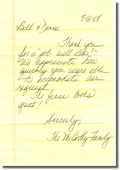 Bill & Diane
Thank you
for a job well done!
We appreciate how
quickly you were able
to accommodate our
request.
The fence looks
great!
Sincerely,
The Family